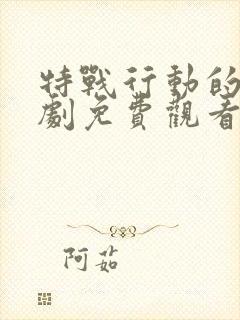 特戰行動的
劇免費觀看
阿茹